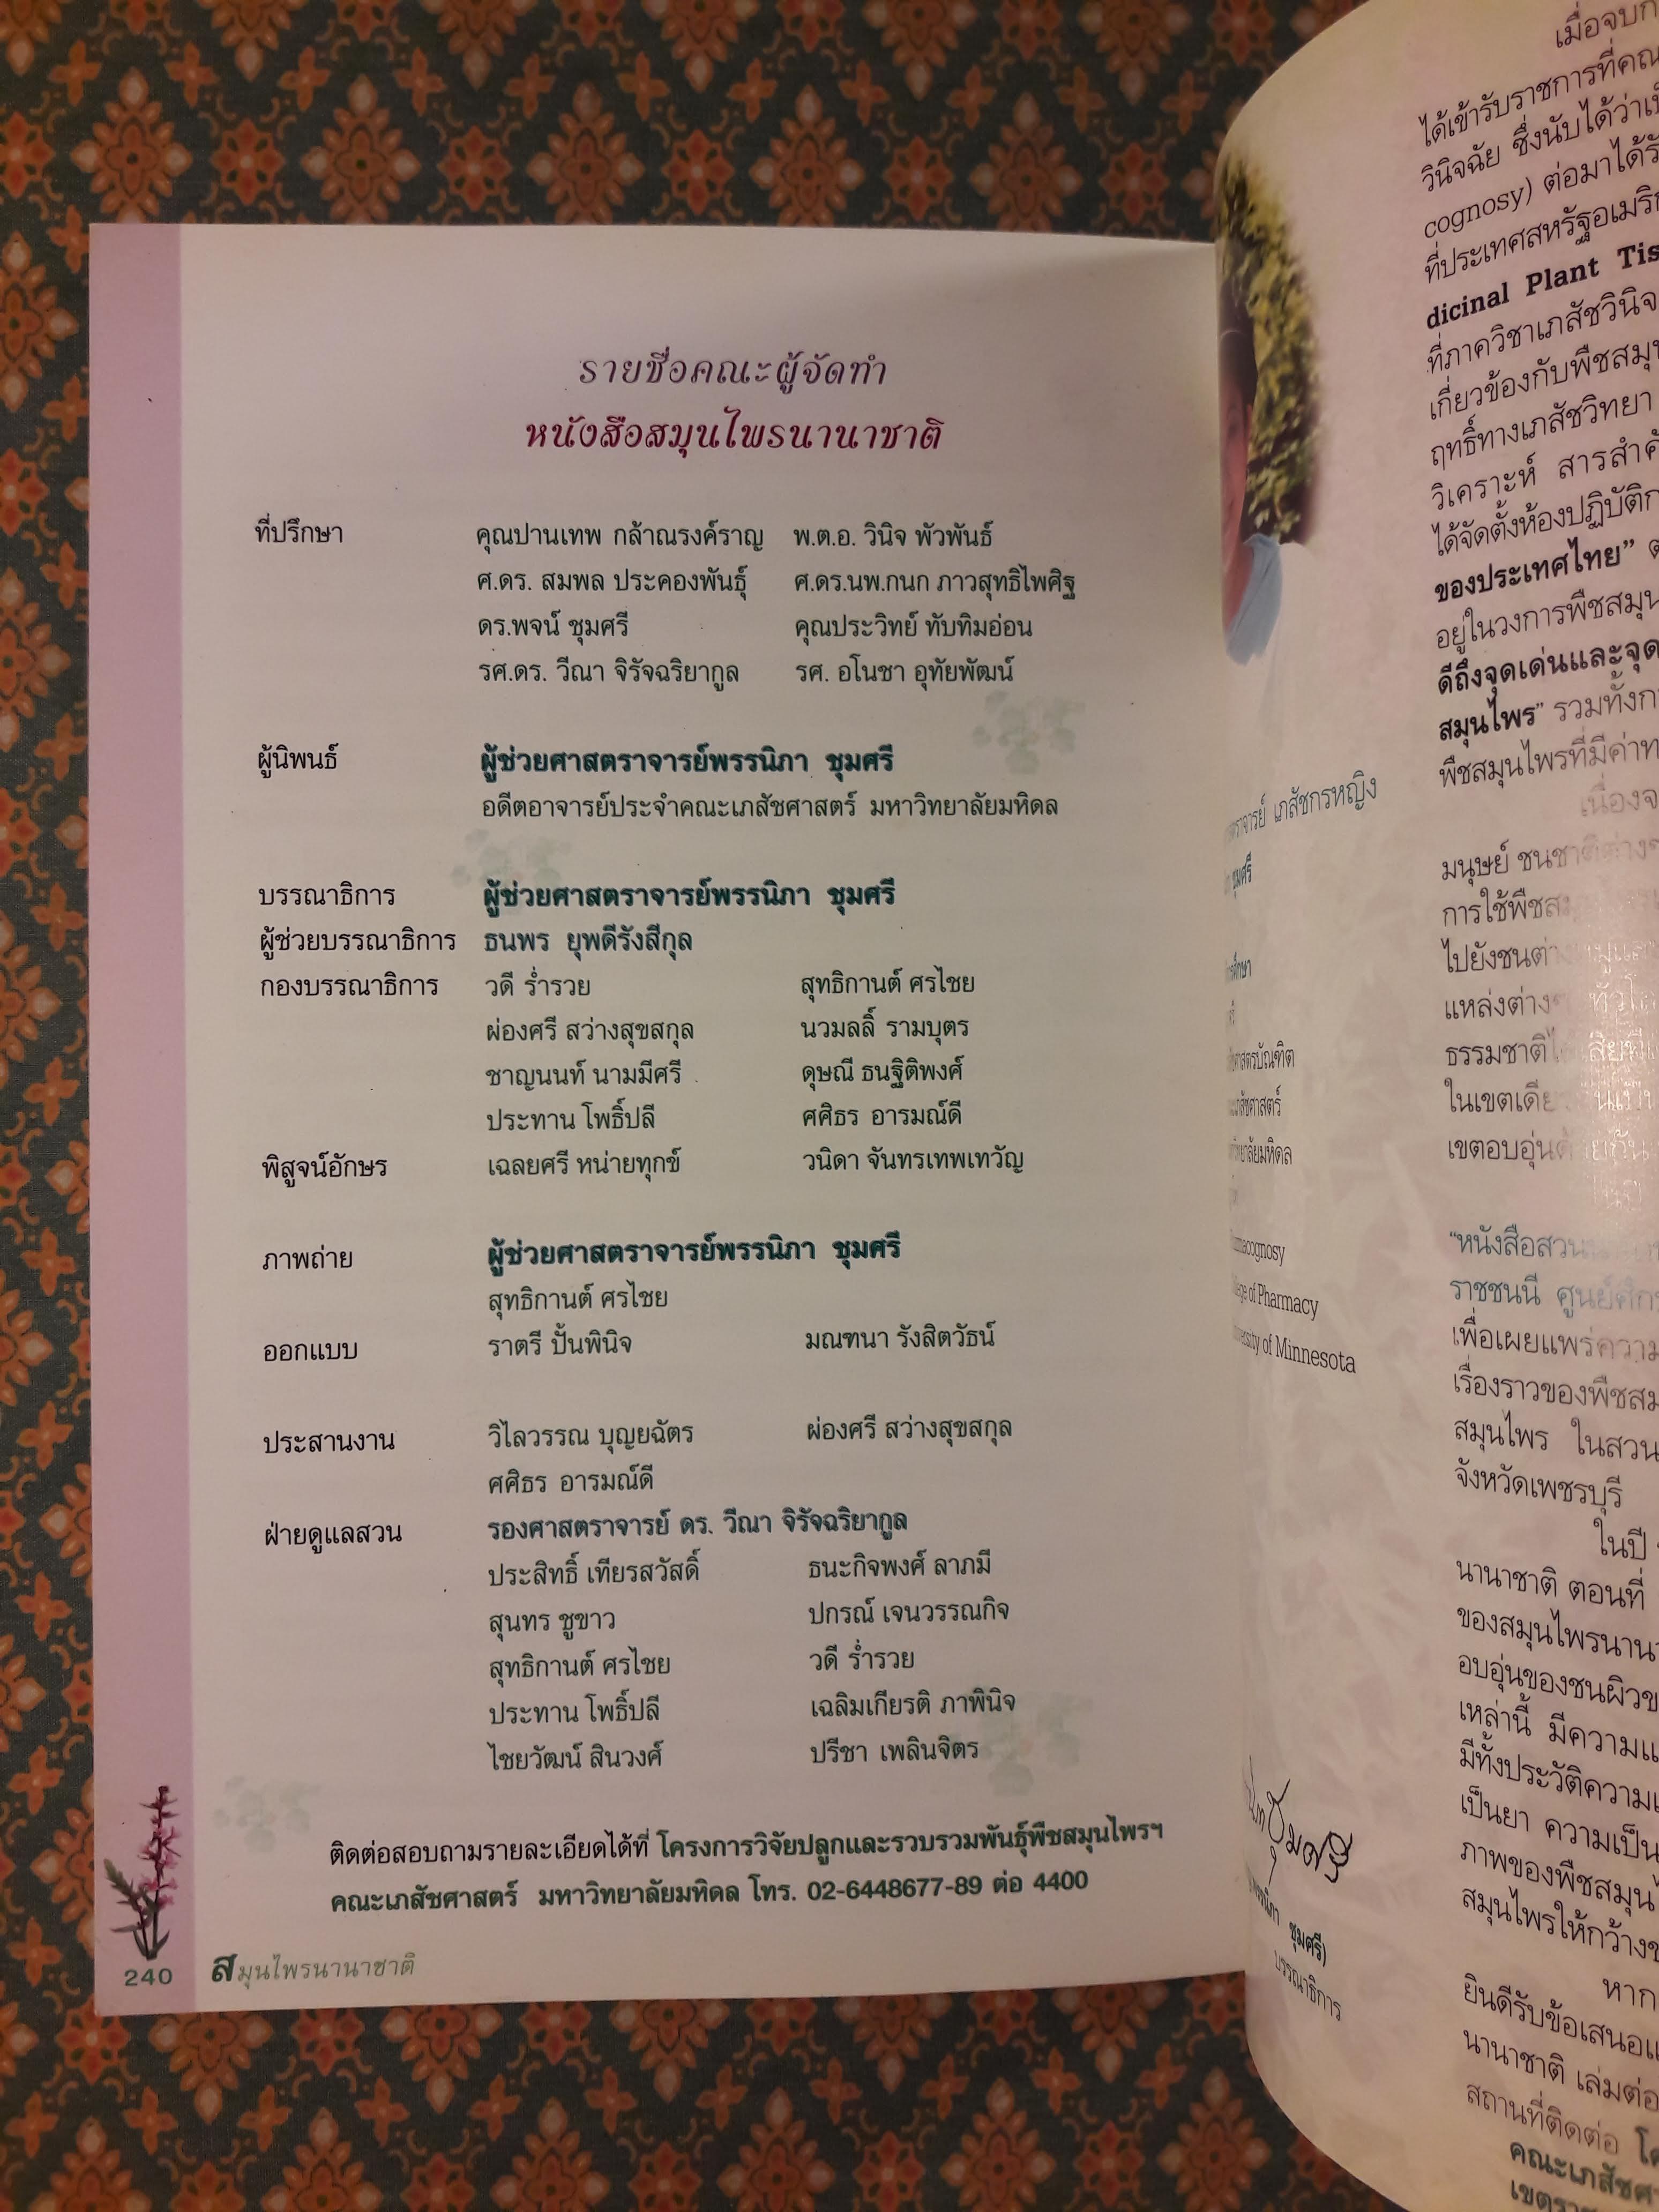 รายชื่อคณะผู้จัดทำ
หนังสือสมุนไพรนานาชาติ
ที่ปรึกษา คุณปานเทพ กล้าณรงค์ราญ พ.ต.อ. วินิจ พัวพันธ์
ศ.ดร. สมพล ประคองพันธุ์ ศ.ดร.นพ.กนก ภาวสุทธิไพศิฐ
ดร.พจน์ ชุมศรี คุณประวิทย์ ทับทิมอ่อน
รศ.ดร. วีณา จิรัจฉริยากูล รศ. อโนชา อุทัยพัฒน์
ผู้นิพนธ์ ผู้ช่วยศาสตราจารย์พรรนิภา ชุมศรี
อดีตอาจารย์ประจำคณะเภสัชศาสตร์ มหาวิทยาลัยมหิดล
บรรณาธิการ ผู้ช่วยศาสตราจารย์พรรนิภา ชุมศรี
ผู้ช่วยบรรณาธิการ ธนพร ยุพดีรังสีกุล
กองบรรณาธิการ วดี ร่ำรวย สุทธิกานต์ ศรไชย
ผ่องศรี สว่างสุขสกุล นวมลลิ์ รามบุตร
ชาญนนท์ นามมีศรี ดุษณี ธนฐิติพงศ์
ประทาน โพธิ์ปลี ศศิธร อารมณ์ดี
พิสูจน์อักษร เฉลยศรี หน่ายทุกข์ วนิดา จันทรเทพเทวัญ
ภาพถ่าย ผู้ช่วยศาสตราจารย์พรรนิภา ชุมศรี
สุทธิกานต์ ศรไชย
ออกแบบ ราตรี ปั้นพินิจ มณฑนา รังสิตวัธน์
ประสานงาน วิไลวรรณ บุญยฉัตร ผ่องศรี สว่างสุขสกุล
ศศิธร อารมณ์ดี
ฝ่ายดูแลสวน รองศาสตราจารย์ ดร. วีณา จิรัจฉริยากูล
ประสิทธิ์ เทียรสวัสดิ์ ธนะกิจพงศ์ ลาภมี
สุนทร ชูขาว ปกรณ์ เจนวรรณกิจ
สุทธิกานต์ ศรไชย วดี ร่ำรวย
ประทาน โพธิ์ปลี เฉลิมเกียรติ ภาพินิจ
ไชยวัฒน์ สินวงศ์ ปรีชา เพลินจิตร
ติดต่อสอบถามรายละเอียดได้ที่ โครงการวิจัยปลูกและรวบรวมพันธุ์พืชสมุนไพรฯ
คณะเภสัชศาสตร์ มหาวิทยาลัยมหิดล โทร. 02-6448677-89 ต่อ 4400
240 สมุนไพรนานาชาติ
เภสัชกรหญิง
ชุมศรี
of Pharmacy
of Minnesota
ชุมศรี
ชุมศรี)
บรรณาธิการ
ได้เข้ารับราชการที่
วินิจฉัย ซึ่งนับได้ว่า
cognosy) ต่อมาได้
ที่ประเทศสหรัฐอเมริ
dicinal Plant Tis
ที่ภาควิชาเภสัชวินิจ
เกี่ยวข้องกับพืชสมุน
ฤทธิ์ทางเภสัชวิทยา
วิเคราะห์ สารสำคั
ได้จัดตั้งห้องปฏิบัติก
ของประเทศไทย”
อยู่ในวงการพืชสมุน
ดีถึงจุดเด่นและจุด
สมุนไพร” รวมทั้ง
พืชสมุนไพรที่มีค่า
มนุษย์
การใช้พืช
ไปยังชน
แหล่งต่าง
ธรรมชาติ
ในเขต
เขตอบอุ่น
“หนังสือสวน
ราชชนนี ศูนย์ศึก
เพื่อเผยแพร่ความ
เรื่องราวของพืชสม
สมุนไพร ในสวน
จังหวัดเพชรบุรี
ในปี
นานาชาติ ตอนที่
ของสมุนไพรนานา
อบอุ่นของชนผิวข
เหล่านี้ มีความ
มีทั้งประวัติความ
เป็นยา ความเป็น
ภาพของพืชสมุนไ
สมุนไพรให้กว้าง
หาก
ยินดีรับข้อเสนอ
นานาชาติ เล่มต่อ
สถานที่ติดต่อ
คณะเภสัช